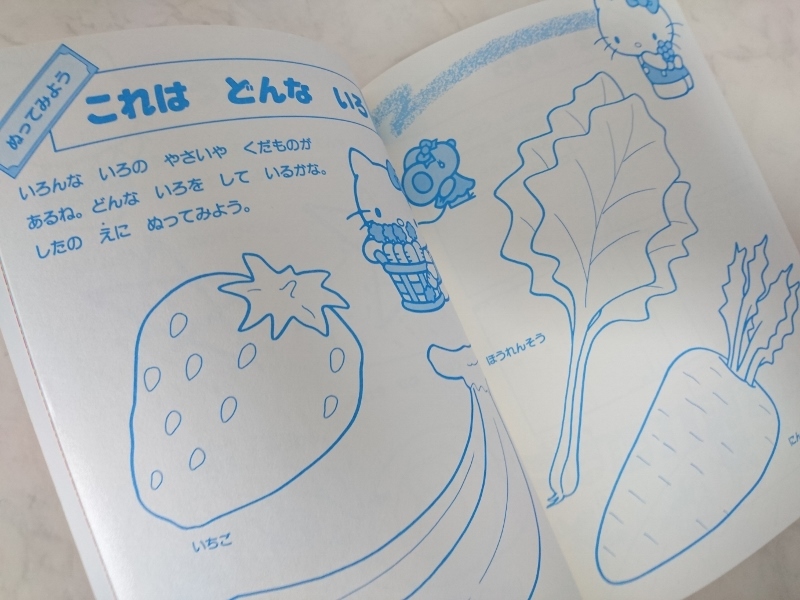 ぬってみよう
これは どんな いろ
いろんな いろの やさいや くだものが
あるね。どんな いろを して いるかな。
したの えに ぬってみよう。
いちご
ほうれんそう
にん